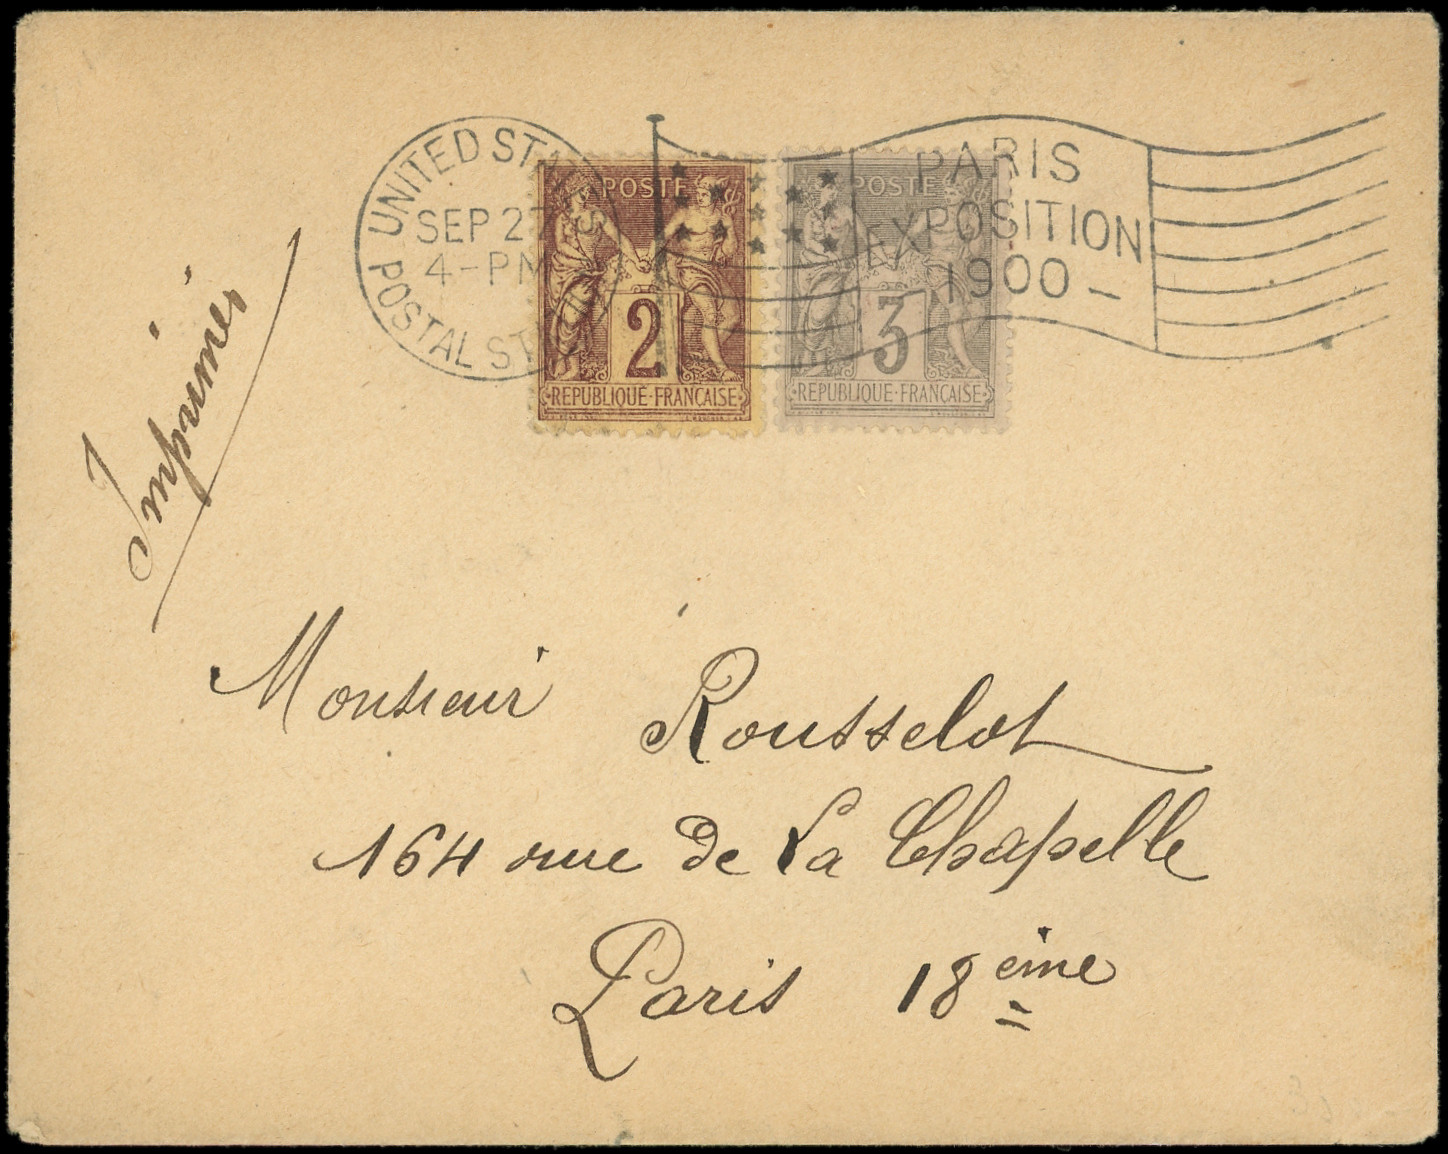 UNITED STA
POSTAL STATION
SEP 27
4-PM
PARIS
EXPOSITION
1900 –
POSTE
2
REPUBLIQUE·FRANÇAISE
POSTE
3
REPUBLIQUE·FRANÇAISE
Imprimés
Monsieur Rousselot
164 rue de La Chapelle
Paris 18ème